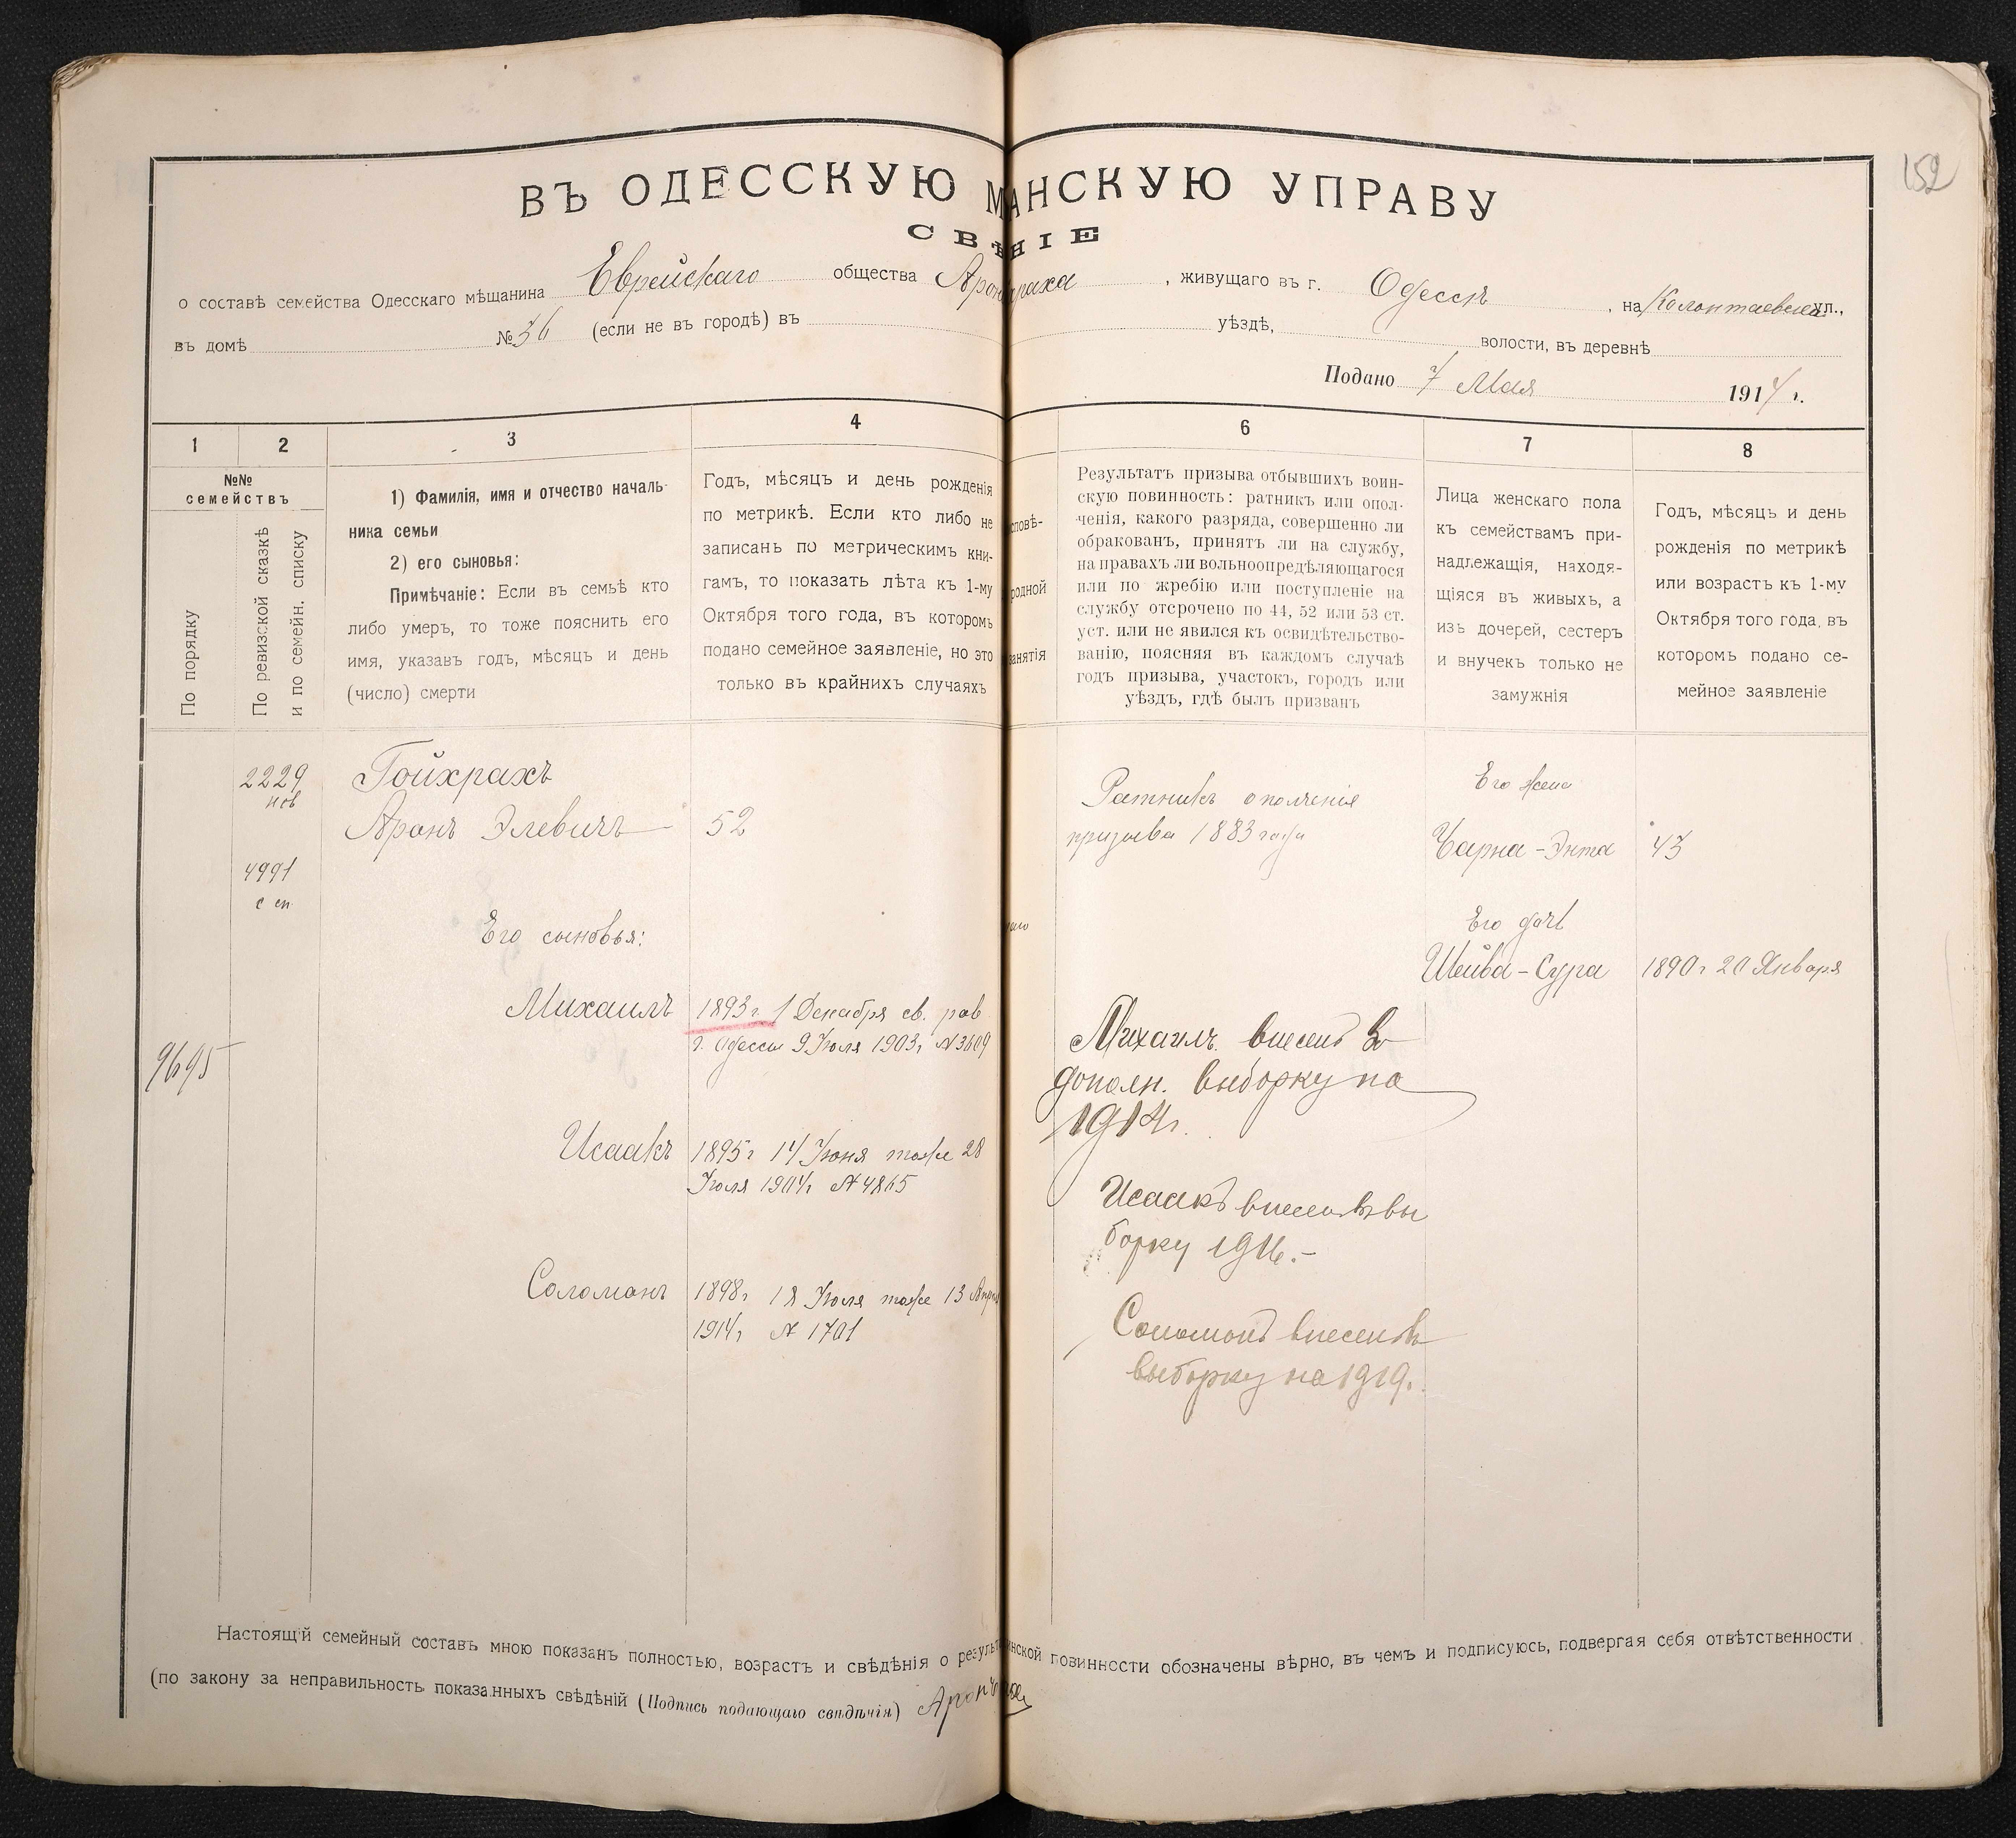 152
ВЪ ОДЕССКУЮ М АНСКУЮ УПРАВУ
СВѢ НІЕ
о составѣ семейства Одесскаго мѣщанина Еврейскаго общества Арон раха , живущаго въ г. Одессѣ , на Колонтаевской ул.,
въ домѣ № 36 (если не въ городѣ) въ уѣздѣ, волости, въ деревнѣ
Подано 7 Мая 1914 г.
1 2 3 4 6 7 8
№№
семействъ
По порядку
По ревизской сказкѣ
и по семейн. списку
1) Фамилія, имя и отчество началь-
ника семьи
2) его сыновья:
Примѣчаніе: Если въ семьѣ кто
либо умеръ, то тоже пояснить его
имя, указавъ годъ, мѣсяцъ и день
(число) смерти
Годъ, мѣсяцъ и день рожденія
по метрикѣ. Если кто либо не
записанъ по метрическимъ кни-
гамъ, то показать лѣта къ 1-му
Октября того года, въ которомъ
подано семейное заявленіе, но это
только въ крайнихъ случаяхъ
сповѣ-
родной
занятія
Результатъ призыва отбывшихъ воин-
скую повинность: ратникъ или опол-
ченія, какого разряда, совершенно ли
обракованъ, принятъ ли на службу,
на правахъ ли вольноопредѣляющагося
или по жребію или поступленіе на
службу отсрочено по 44, 52 или 53 ст.
уст. или не явился къ освидѣтельство-
ванію, поясняя въ каждомъ случаѣ
годъ призыва, участокъ, городъ или
уѣздъ, гдѣ былъ призванъ
Лица женскаго пола
къ семействамъ при-
надлежащія, находя-
щіяся въ живыхъ, а
изъ дочерей, сестеръ
и внучекъ только не
замужнія
Годъ, мѣсяцъ и день
рожденія по метрикѣ
или возрастъ къ 1-му
Октября того года, въ
которомъ подано се-
мейное заявленіе
2229
нов
4991
с сп.
9695
Гойхрахъ
Аронъ Элевичъ 52
Его сыновья:
Михаилъ 1893 г. 1 Декабря св. рав
г. Одессы 9 Іюля 1903 г № 3609
Исаакъ 1895 г 14 Іюня тоже 28
Іюля 1904 г № 4865
Соломонъ 1898 г 18 Іюля тоже 13 Апрел
1914 г № 1701
Ратникъ ополченія
призыва 1883 года
Михаилъ внесенъ во
дополн. выборку на
1914 г.
Исаакъ внесенъ въ вы
борку 1916.-
Соломонъ внесенъ въ
выборку на 1919.
Его жена
Чарна-Энта 43
Его дочь
Шейва-Сура 1890 г 20 Января
Настоящій семейный составъ мною показанъ полностью, возрастъ и свѣдѣнія о резуль инской повинности обозначены вѣрно, въ чемъ и подписуюсь, подвергая себя отвѣтственности
(по закону за неправильность показанныхъ свѣдѣній (Подпись подающаго свѣдѣнія) Аронъ